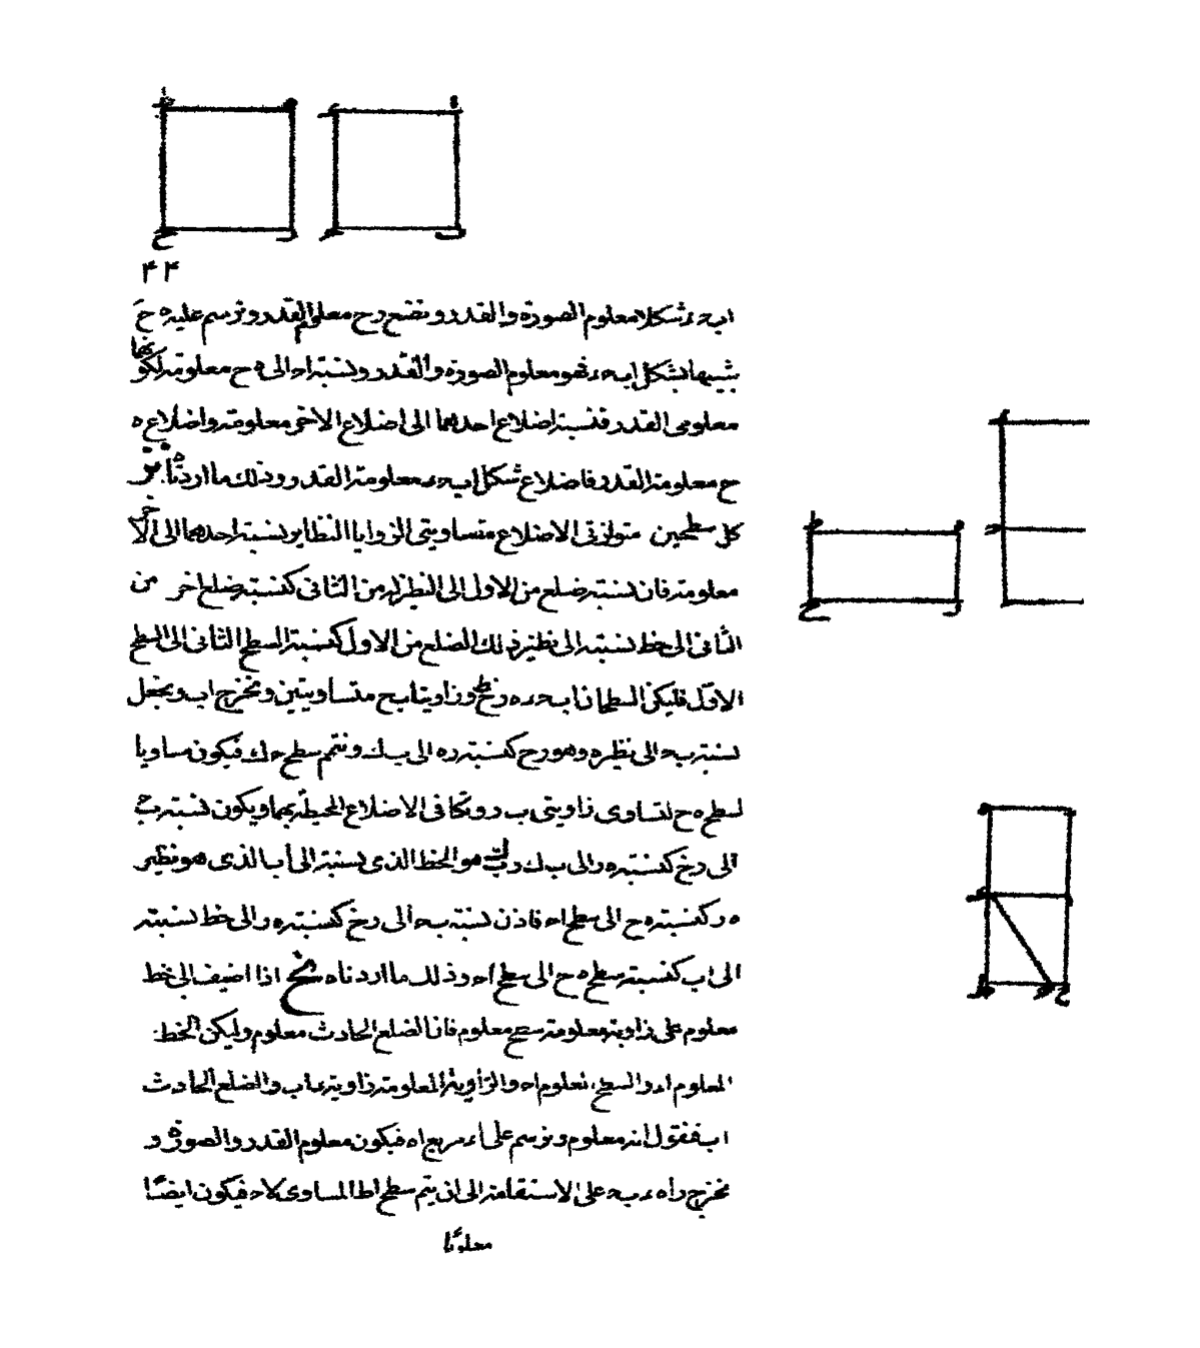 ٤٤
اب حء شكلا معلوم الصورة والقدر ونضع رح معلوم القدر ونرسم عليه ه ح
شبيها بشكل اب حء فهو معلوم الصورة والقدر ونسبة اح الى ه ح معلومة لكونهما
معلومى القدر فنسبة اضلاع احدهما الى اضلاع الاخر معلومة واضلاع ه
ح معلومة القدر فاضلاع شكل اب حء معلومة القدر وذلك ما اردناه
كل سطحين متوازيى الاضلاع متساويتى الزوايا النظاير نسبة احدهما الى الاخر
معلومة فان نسبة ضلع من الاول الى النظير له من الثانى كنسبة ضلع اخر من
الثانى الى خط نسبته الى نظير ذلك الضلع من الاول كنسبة السطح الثانى الى السطح
الاول فليكن السطحان اب حء ه رح ط وزاويتا ب ح متساويتين ونخرج اب ونجعل
نسبة ب ح الى نظيره وهو رح كنسبة ره الى ب ك ونتم سطح حك فيكون مساويا
لسطح ه ح لتساوى زاويتى ب ر وتكافى الاضلاع المحيطة بهما ويكون نسبة ب ح
الى رح كنسبة ه ر الى ب ك و ب ك هو الخط الذى نسبته الى اب الذى هو نظير
ه ر كنسبة ه ح الى سطح اح فاذن نسبة ب ح الى رح كنسبة ه ر الى خط نسبته
الى اب كنسبة سطح ه ح الى سطح اح وذلك ما اردناه نح اذا اضيف الى خط
معلوم على زاوية معلومة سطح معلوم فان الضلع الحادث معلوم وليكن الخط
المعلوم اء والسطح المعلوم اح والزاوية المعلومة زاوية ءاب والضلع الحادث
اب فنقول انه معلوم ونرسم على اء مربع اه فيكون معلوم القدر والصورة و
نخرج راه ء ب ح على الاستقامة الى ان يتم سطح اط المساوى لاح فيكون ايضًا
معلومًا